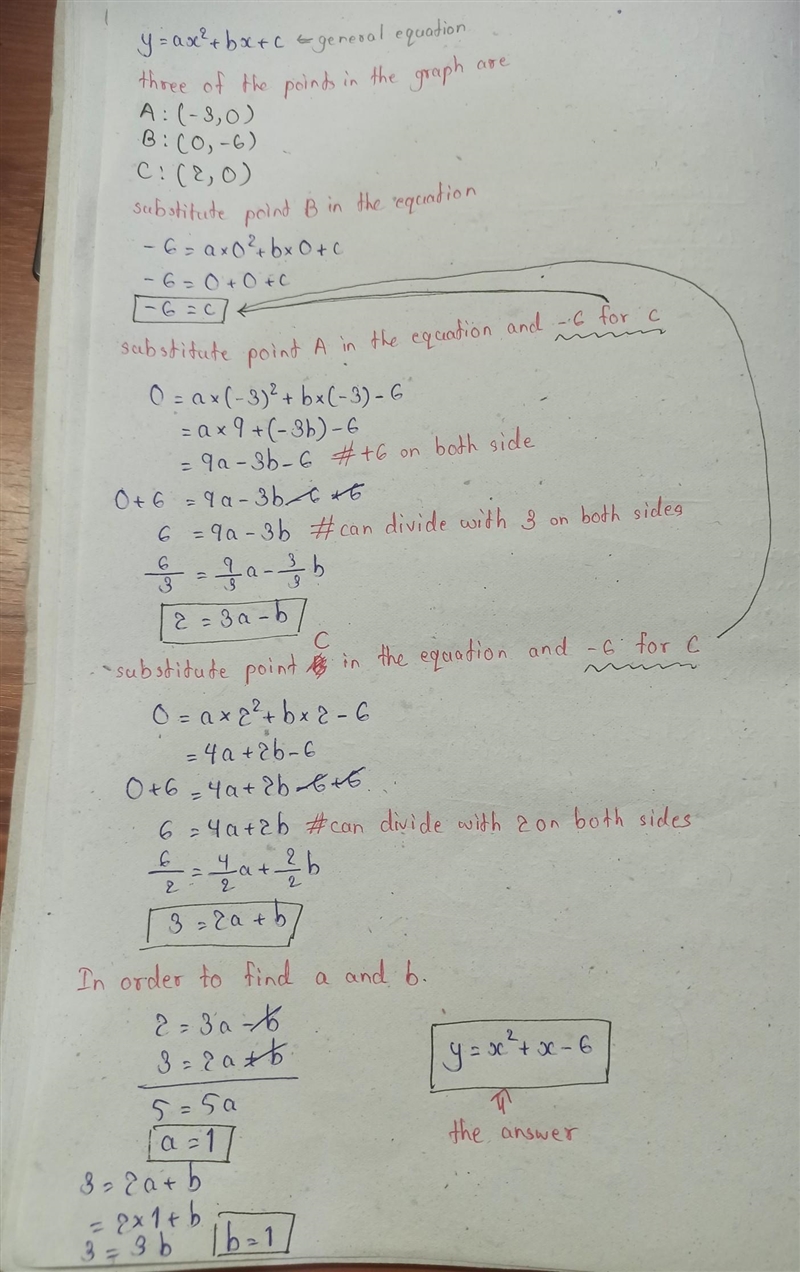 y = ax² + bx + c ← general equation
three of the points in the graph are
A : (-3, 0)
B : (0, -6)
C : (2, 0)
substitute point B in the equation
-6 = a × 0² + b × 0 + c
-6 = 0 + 0 + c
-6 = c
substitute point A in the equation and -6 for c
0 = a × (-3)² + b × (-3) - 6
= a × 9 + (-3b) - 6
= 9a - 3b - 6 # +6 on both side
0 + 6 = 9a - 3b - 6 + 6
6 = 9a - 3b # can divide with 3 on both sides
6/3 = 9/3 a - 3/3 b
2 = 3a - b
substitute point C in the equation and -6 for c
0 = a × 2² + b × 2 - 6
= 4a + 2b - 6
0 + 6 = 4a + 2b - 6 + 6
6 = 4a + 2b # can divide with 2 on both sides
6/2 = 4/2 a + 2/2 b
3 = 2a + b
In order to find a and b.
2 = 3a - b
3 = 2a + b
5 = 5a
a = 1
3 = 2a + b
= 2 × 1 + b
3 = 3b b = 1
y = x² + x - 6
the answer